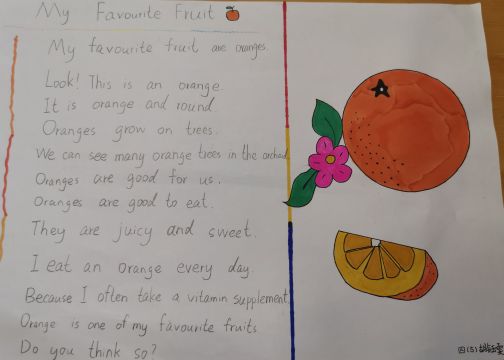 My Favourite Fruit
My favourite fruit are oranges.
Look! This is an orange.
It is orange and round.
Oranges grow on trees.
We can see many orange trees in the orchard.
Oranges are good for us.
Oranges are good to eat.
They are juicy and sweet.
I eat an orange every day.
Because I often take a vitamin supplement.
Orange is one of my favourite fruits
Do you think so?
四(5)